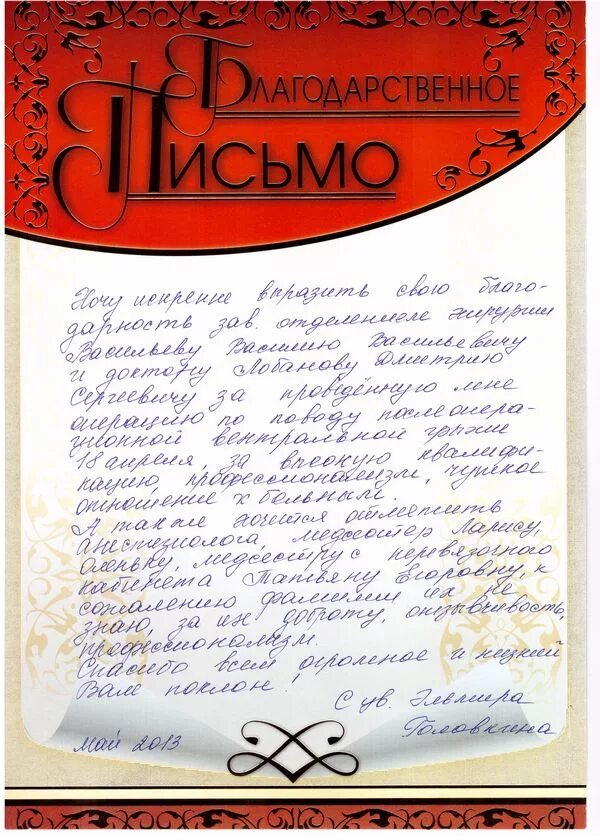 Благодарственное
Письмо
Хочу искренне выразить свою благо-
дарность зав. отделением хирургии
Васильеву Василию Васильевичу
и доктору Лобанову Дмитрию
Сергеевичу за проведённую мне
операцию по поводу послеопера-
ционной вентральной грыжи
18 апреля, за высокую квалифи-
кацию, профессионализм, чуткое
отношение к больным.
А также хочется отметить
анестезиолога, медсестёр Ларису,
Оленьку, медсестру с перевязочного
кабинета Татьяну Егоровну, к
сожалению фамилии их не
знаю, за их доброту, отзывчивость,
профессионализм.
Спасибо всем, огромное и низкий
Вам поклон!
С ув. Эльмира
Головкина
май 2013